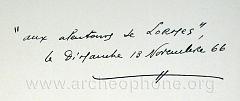 "aux alentours de LORMES",
le Dimanche 13 Novembre 66
www.archeophone.org